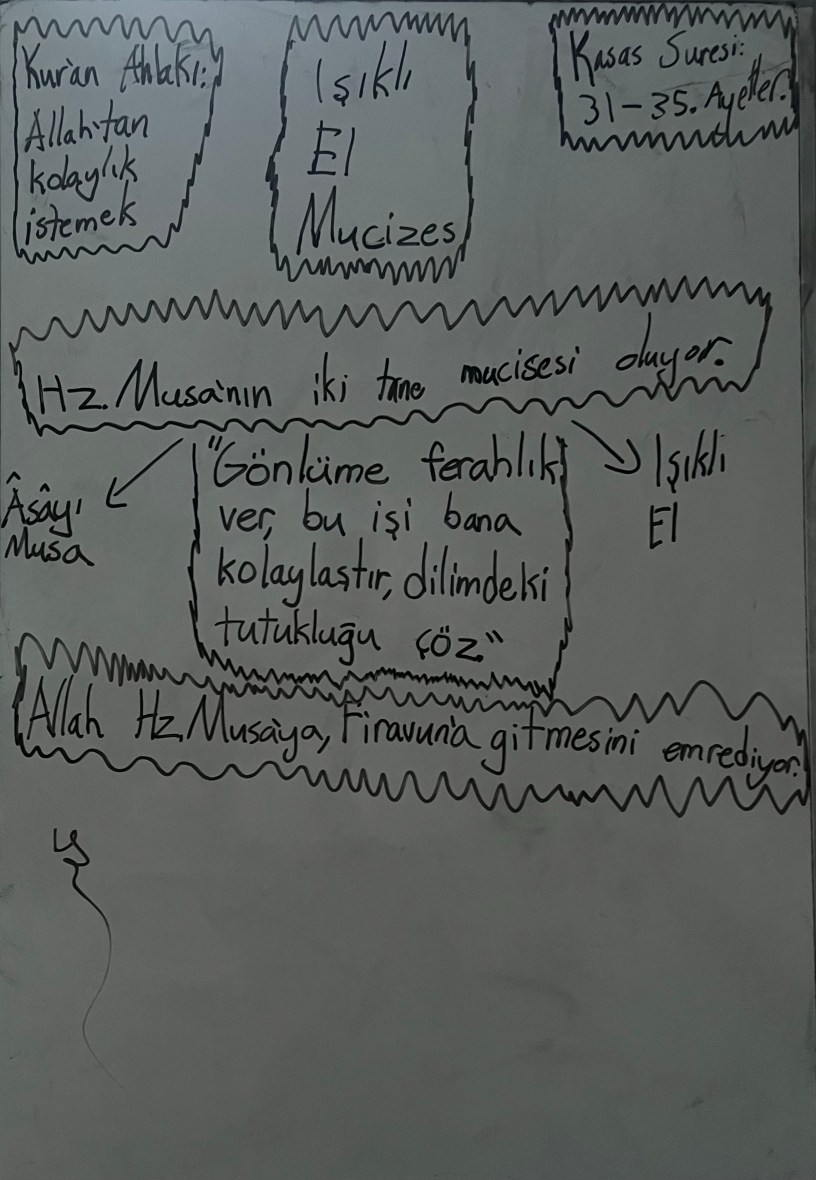 Kur'an Ahlakı:
Allah'tan
kolaylık
istemek
Işıklı
El
Mucizes
Kasas Suresi:
31-35. Ayetler.
Hz. Musa'nın iki tane mucisesi oluyor.
Âsâyı
Musa
"Gönlüme ferahlık
ver, bu işi bana
kolaylaştır, dilimdeki
tutukluğu çöz."
Işıklı
El
Allah Hz. Musa'ya, Firavun'a gitmesini emrediyor.